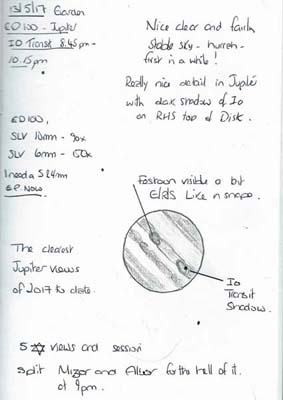 13/5/17 Garden
ED100 - Jupiter
IO Transit 8.45pm -
10.15pm
Nice clear and fairly
stable sky - hurrah -
first in a while!
Really nice detail in Jupiter
with dark shadow of Io
on RHS top of Disk.
ED100,
SLV 10mm - 90x
SLV 6mm - 150x
I need a SLV 4mm
EP. Now
Festoon visible a bit
like in shape.
The clearest
Jupiter views
of 2017 to date.
Io
Transit
Shadow.
5 views and session
Split Mizar and Alcor for the hell of it.
at 9pm.